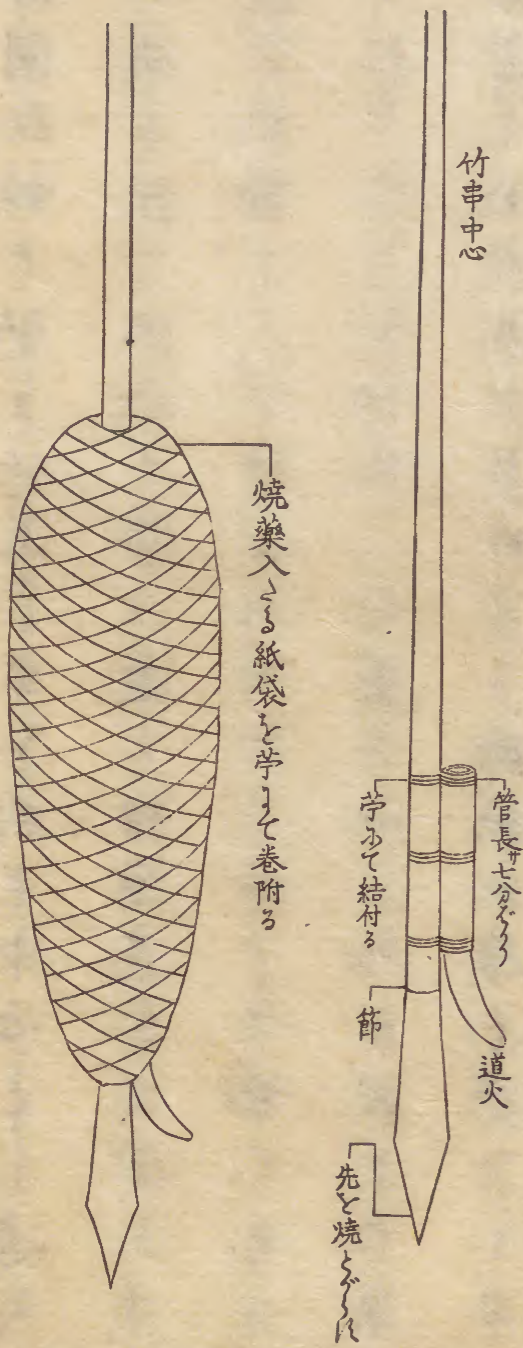 竹串中心
管長サ七分ばかり
苧にて結付る
道火
節
先を焼とがらす
焼藥入たる紙袋を苧にて巻附る